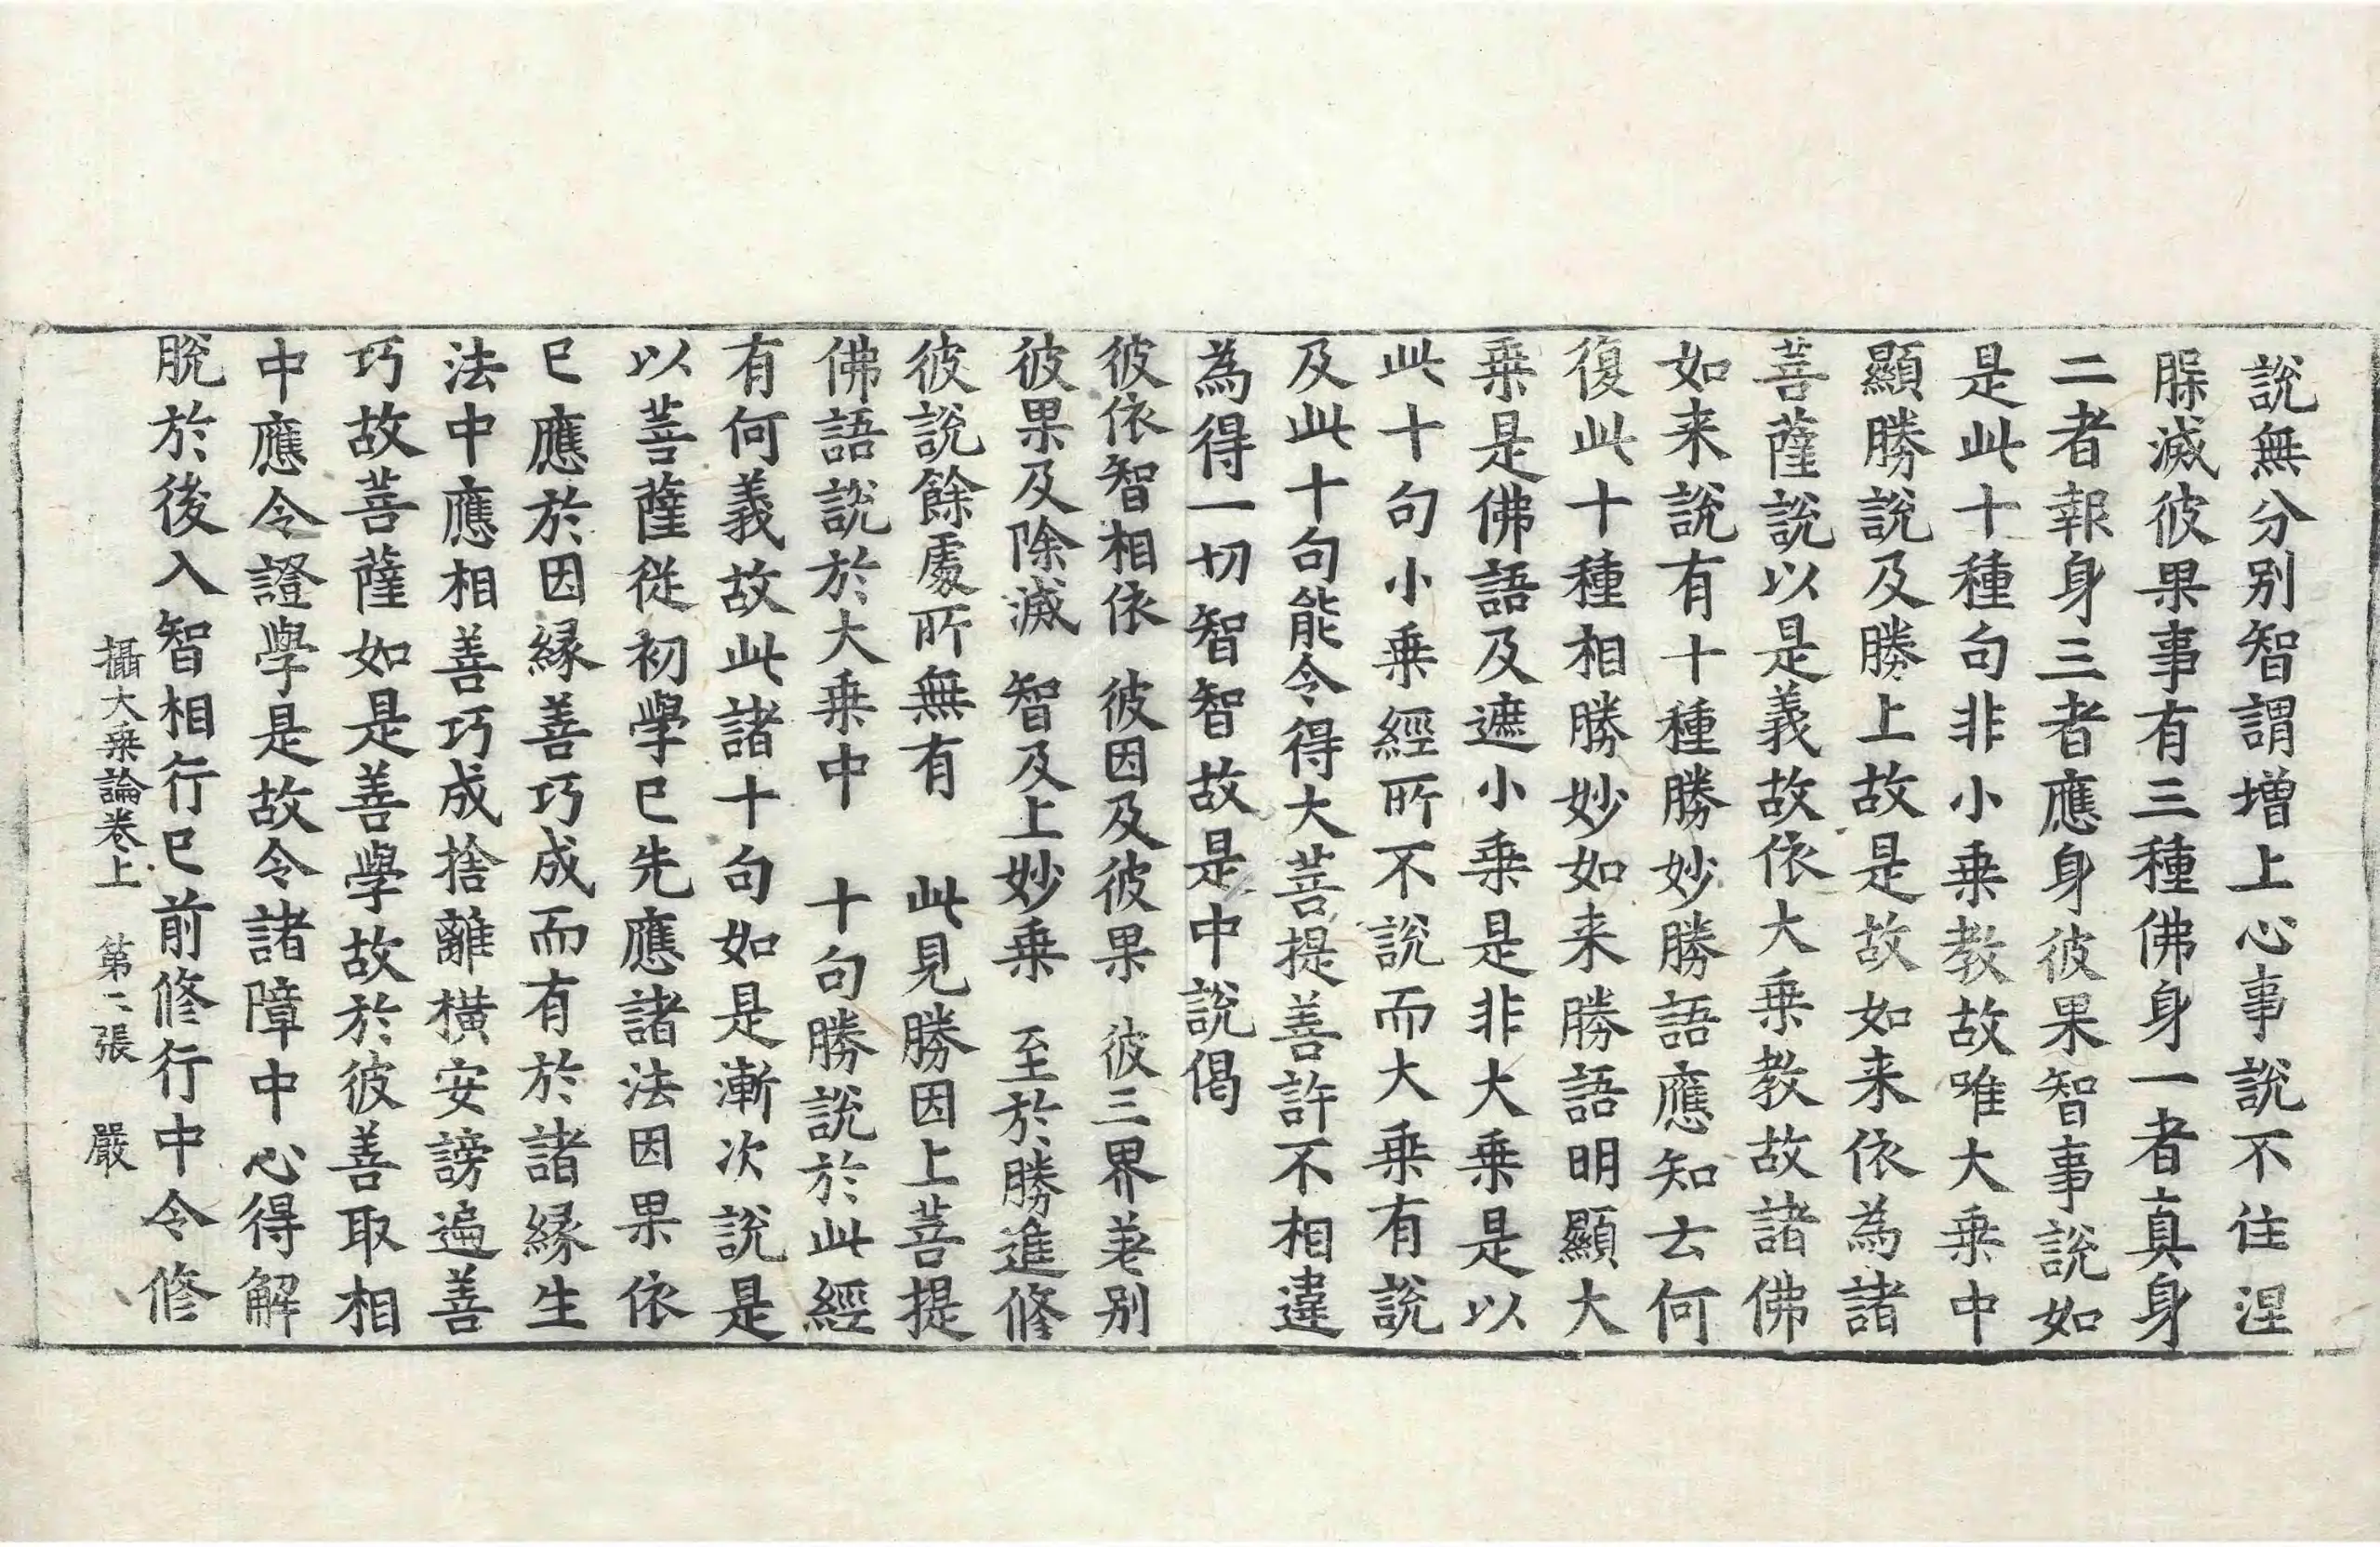 說無分別智謂增上心事說不住涅
脲滅彼果事有三種佛身一者真身
二者報身三者應身彼果智事說如
是此十種句非小乗教故唯大乗中
顯勝說及勝上故是故如来依為諸
菩薩說以是義故依大乗教故諸佛
如来說有十種勝妙勝語應知云何
復此十種相勝妙如来勝語明顯大
乗是佛語及遮小乗是非大乗是以
此十句小乗經所不說而大乗有說
及此十句能令得大菩提善許不相違
為得一切智智故是中說偈
彼依智相依 彼因及彼果 彼三界差别
彼果及除滅 智及上妙乗 至於勝進修
彼說餘處所無有 此見勝因上菩提
佛語說於大乗中 十句勝說於此經
有何義故此諸十句如是漸次說是
以菩薩從初學已先應諸法因果依
已應於因縁善巧成而有於諸縁生
法中應相善巧成捨離橫安謗遍善
巧故菩薩如是善學故於彼善取相
中應令證學是故令諸障中心得解
脫於後入智相行已前修行中令修
攝大乗論卷上 第二張 嚴